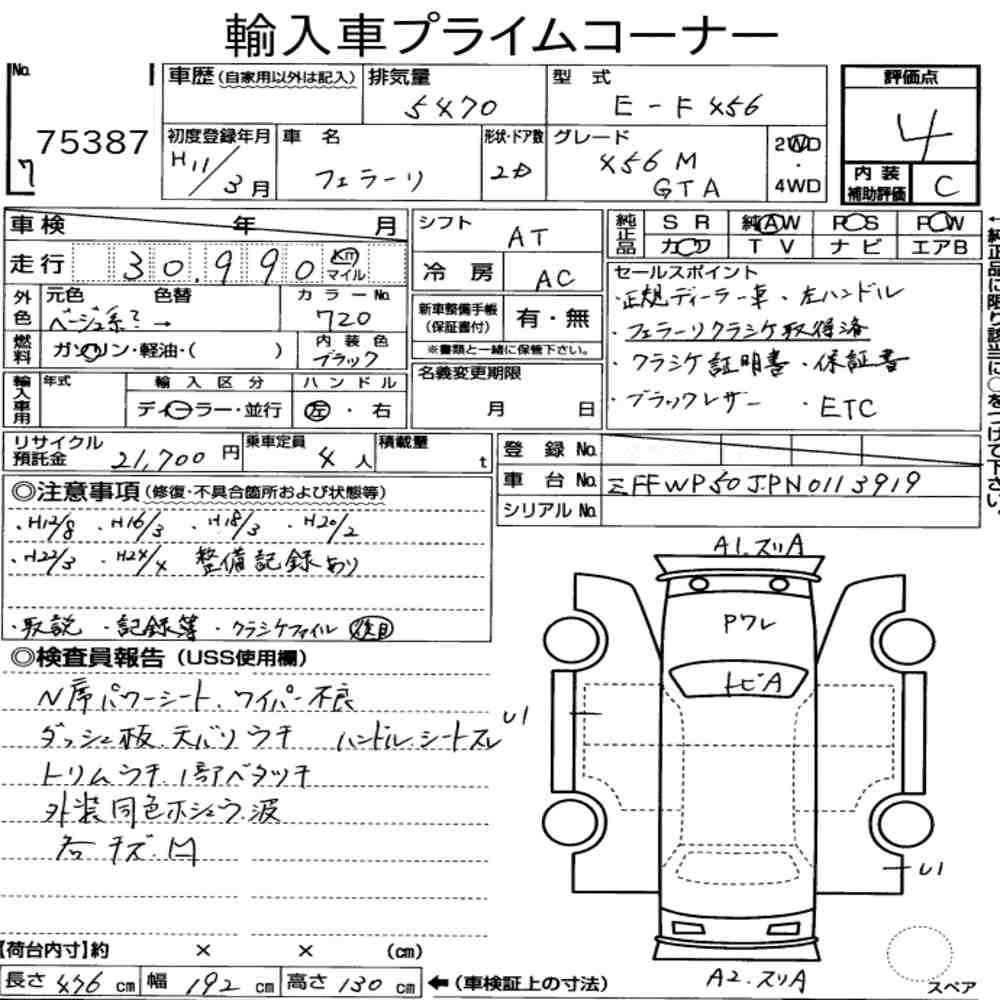 輸入車プライムコーナー
No.
75387
7
車歴(自家用以外は記入)
排気量
5470
型 式
E-F456
評価点
4
初度登録年月
H11/3月
車 名
フェラーリ
形状・ドア数
2D
グレード
456M
GTA
2WD
・
4WD
内 装
補助評価
C
車 検 年 月
シフト
AT
純正品
SR 純AW PS PW
カワ TV ナビ エアB
走 行 30,990 Km マイル
冷 房
AC
セールスポイント
・正規ディーラー車 ・左ハンドル
・フェラーリクラシケ取得済
・クラシケ証明書・保証書
・ブラックレザー ・ETC
←純正品に限り該当に○をつけて下さい。
外色
元色 色替
ベージュ系? →
カラーNo.
720
新車整備手帳
(保証書付)
有・無
※書類と一緒に保管下さい。
燃料
ガソリン・軽油・( )
内 装 色
ブラック
名義変更期限
月 日
輸入車用
年式
輸 入 区 分
ディーラー・並行
ハ ン ド ル
左・右
リサイクル
預託金
21,700円
乗車定員
4人
積載量
t
登 録 No.
車 台 No.
ZFFWP50JPN0113919
シリアルNo.
◎注意事項(修復・不具合箇所および状態等)
・H12/8 ・H16/3 ・H18/3 ・H20/2
・H22/3 ・H24/4 整備記録あり
・取説 ・記録簿 ・クラシケファイル 後日
◎検査員報告(USS使用欄)
N席パワーシート、ワイパー不良
ダッシュ板、天バリウチ ハンドル、シートスレ
トリムウチ、1部ベタツキ
外装同色ホシュウ、波
各キズ、凹
A1.スリA
Pワレ
トビA
U1
U1
A2.スリA
スペア
【荷台内寸】約 × × (cm)
長さ 476 cm 幅 192 cm 高さ 130 cm ←(車検証上の寸法)